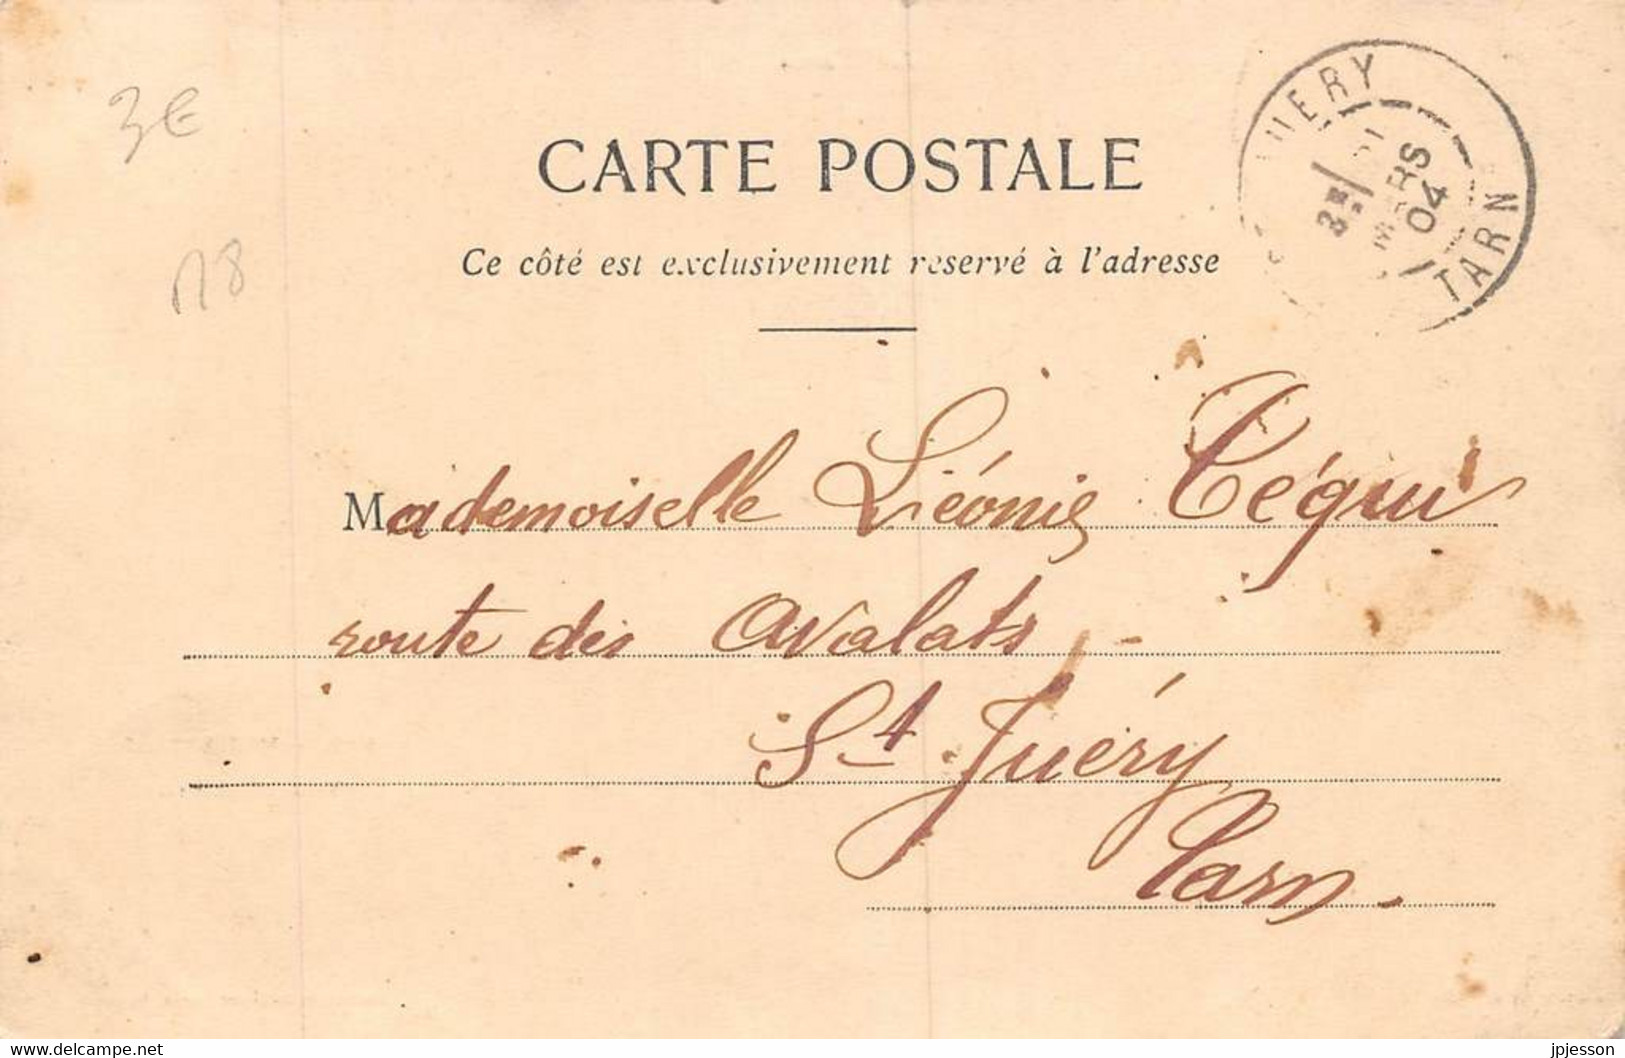 3€
CARTE POSTALE
Ce côté est exclusivement reservé à l'adresse
UERY
3E
MARS
04
TARN
Mademoiselle Léonie Tégui
route des Avalats
St Juéry
Tarn.
www.delcampe.net
jpjesson